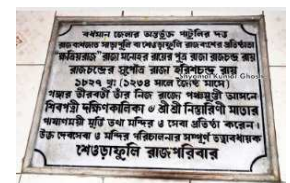 বর্ধমান জেলার অন্তর্ভুক্ত পাটুলির দত্ত
রাজবংশজাত সাড়াপুলি বা শেওড়াফুলি রাজবংশের প্রতিষ্ঠাতা
"ক্ষত্রিয়রাজ" রাজা মনোহর রায়ের পুত্র রাজা রাজচন্দ্র রায়
রাজচন্দ্রের সুপৌত্র রাজা হরিশচন্দ্র রায়
১৮২৭ খৃঃ (১২৩৪ সালে জ্যৈষ্ঠ মাসে)
গঙ্গার তীরবর্তী তাঁর নিজ রাজ্যে পঞ্চমুন্ডী আসনে
শিবপত্নী দক্ষিণকালিকা শ্রী শ্রী নিস্তারিণী মাতার
পাষাণময়ী মূর্তি তথা মন্দির ও সেবা প্রতিষ্ঠা করেন।
উক্ত দেবসেবা ও মন্দির পরিচালনার সম্পূর্ণ তত্ত্বাবধায়ক
শেওড়াফুলি রাজপরিবার
Shyamal Kumar Ghosh